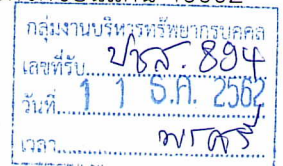 กลุ่มงานบริหารทรัพยากรบุคคล
เลขที่รับ ปรส. 894
วันที่ 11 ธ.ค. 2562
เวลา